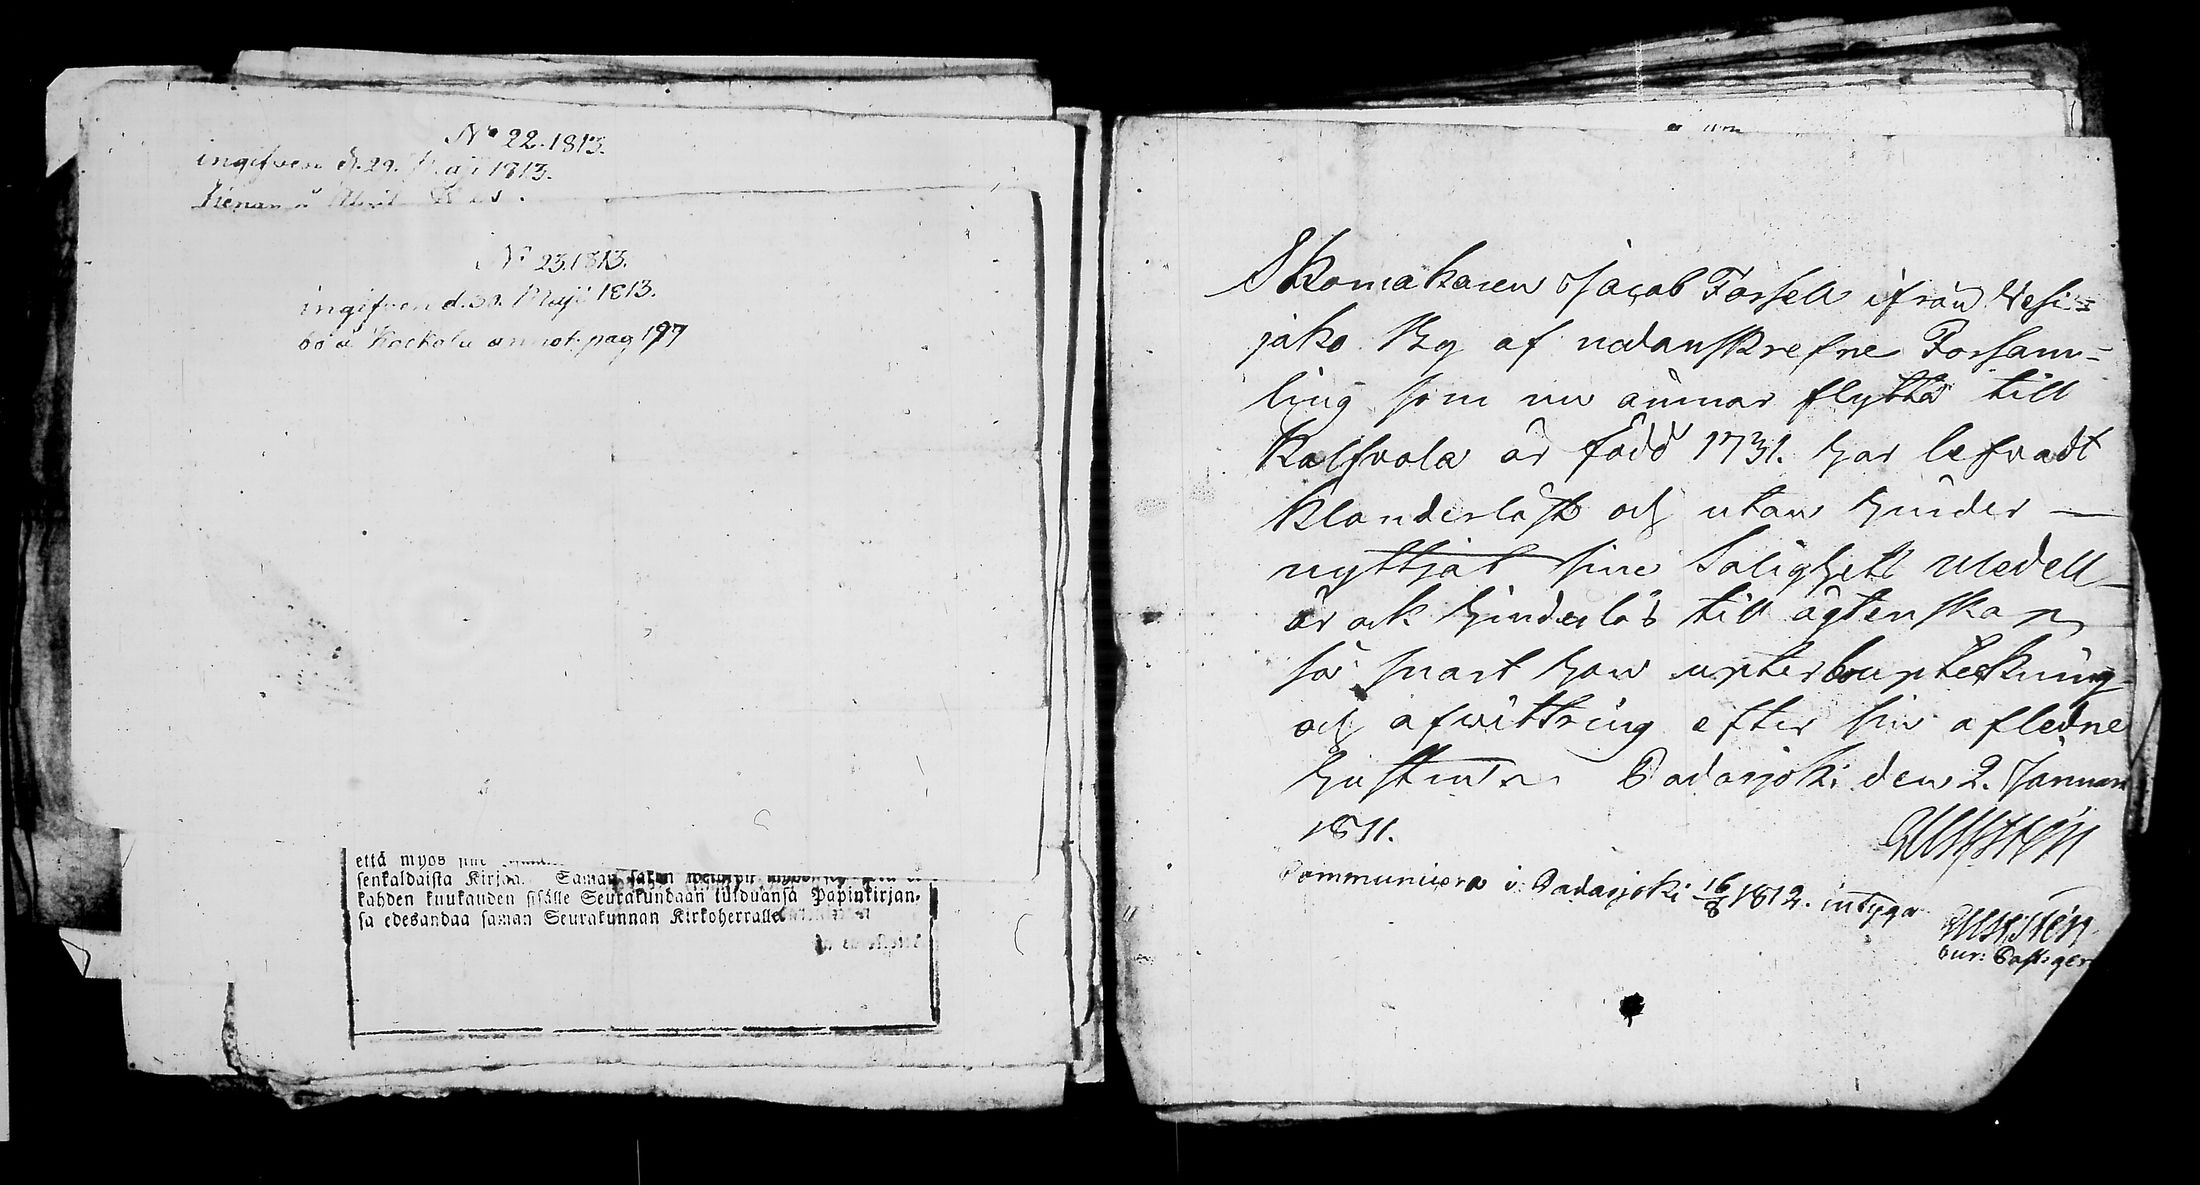 No 22. 1813.
ingifven d. 29. Maji 1813.
No 23. 1813.
ingifven d. 30. Maji 1813.
bo å Kockola annot. pag 197
että myös
senkaldaista Kirjaa. Saman
kahden kuukauden sisälle Seurakundaan tulduansa Papinkirjan-
sa edesandaa saman Seurakunnan Kirkoherralle
Skomakaren Jacob Forsell ifrån Vesi-
jako By af nedanskrefne Forsam-
ling som nu ämnar flytta till
Kalfvola är född 1731. har lefvadt
klanderlöst och utan hinder —
nyttjat sine Salighett Medell
är ock hinderlös till ägtenskap
så snart han upter bouptekning
och afwittring efter sin afledne
hustru. Padasjoki den 2. Januari
1811.
Communicera i Padasjoki 16/8 1812. intygar